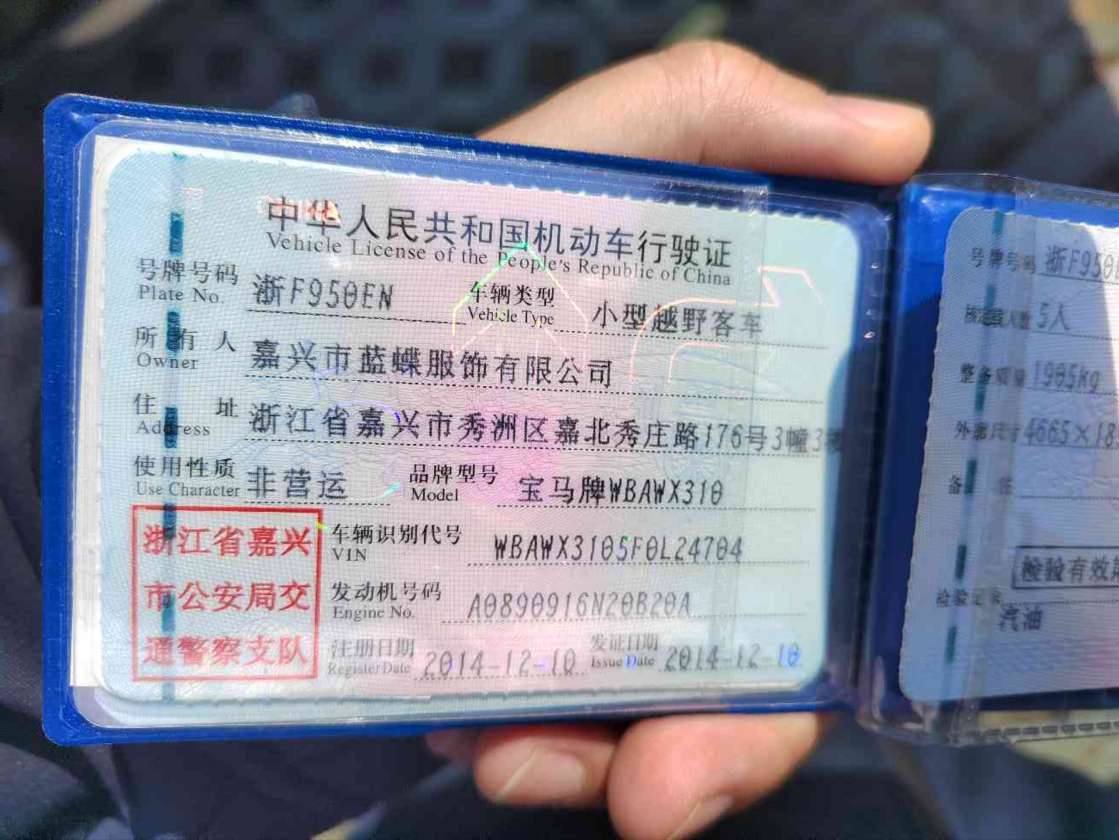 中华人民共和国机动车行驶证
Vehicle License of the People's Republic of China
号牌号码 浙F950EN 车辆类型 小型越野客车
Plate No. Vehicle Type
所有人 嘉兴市蓝蝶服饰有限公司
Owner
住址 浙江省嘉兴市秀洲区嘉北秀庄路176号3幢3楼
Address
使用性质 非营运 品牌型号 宝马牌WBAWX310
Use Character Model
浙江省嘉兴
市公安局交
通警察支队
车辆识别代号 WBAWX3105F0L24704
VIN
发动机号码 A0890916N20B20A
Engine No.
注册日期 2014-12-10 发证日期 2014-12-10
Register Date Issue Date
号牌号码 浙F950
5人
整备质量 1905kg
外廓尺寸 4665×18
备
检验有效
检验记录
汽油